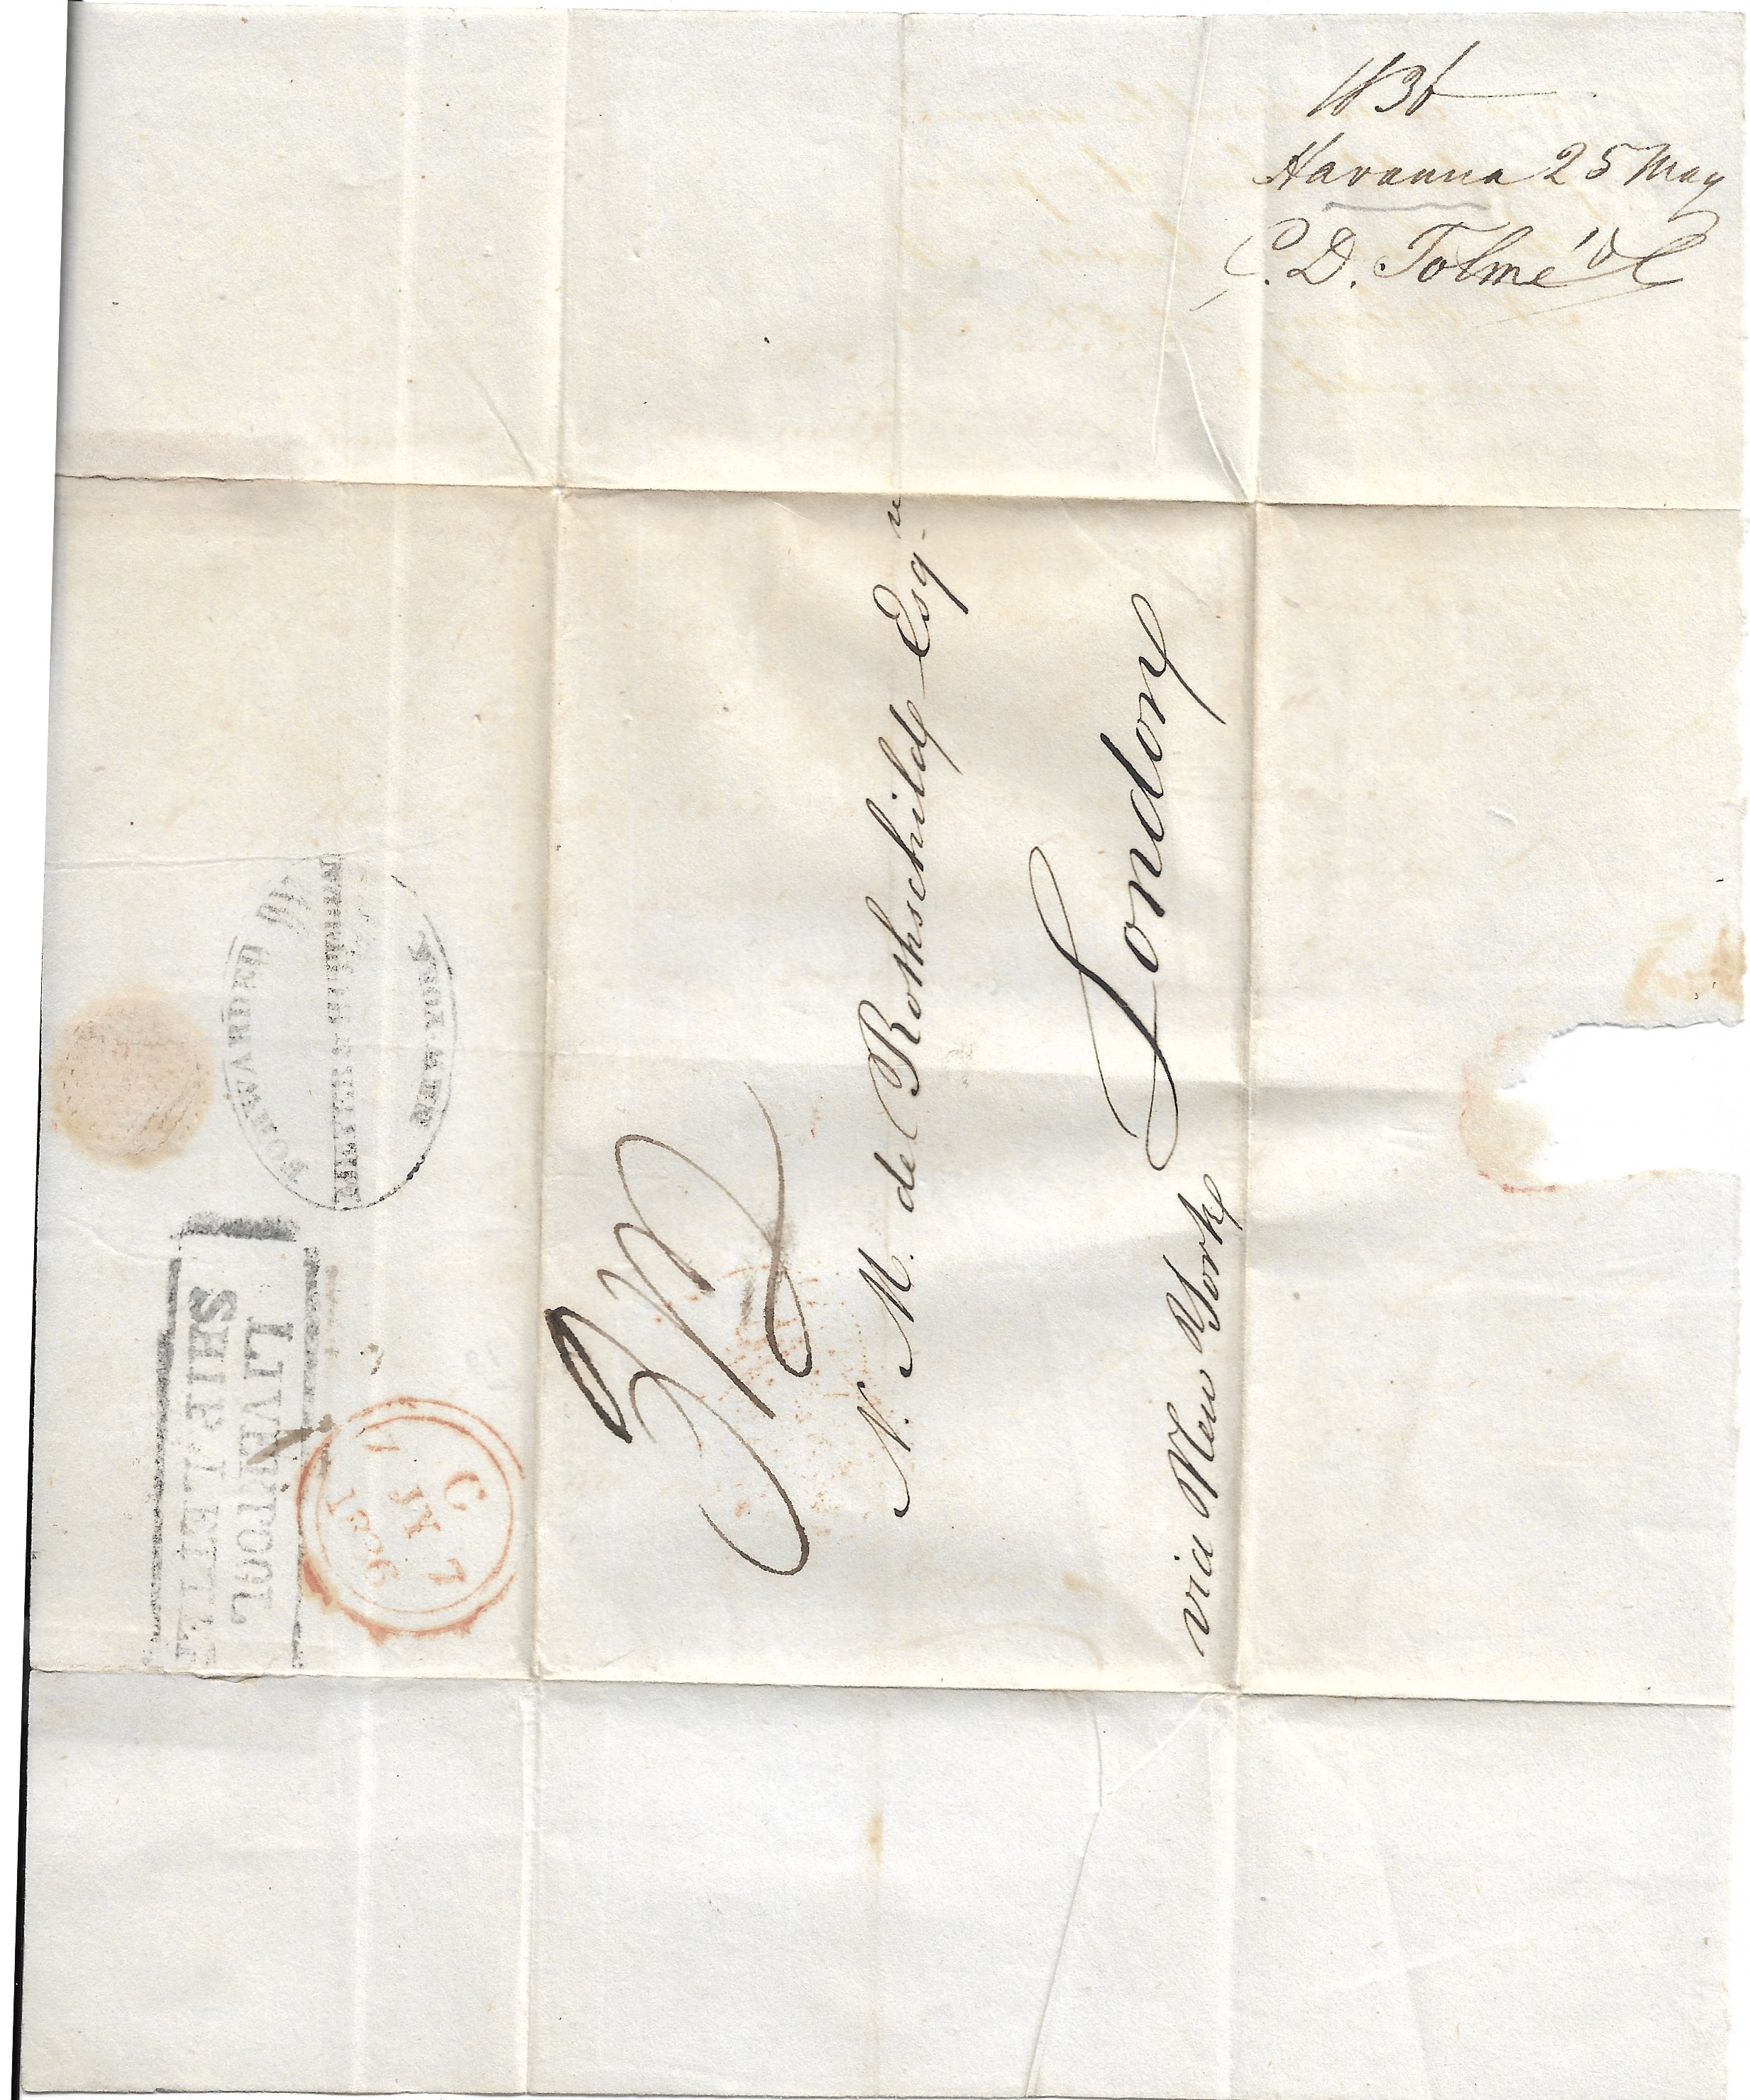 1836
Havanna 25 May
C. D. Tolmé & C
N. M. de Rothschild Esqr
London
via New York
LIVERPOOL
SHIP LETTER
C
7 JY 7
1836
FORWARDED BY
NEW YORK